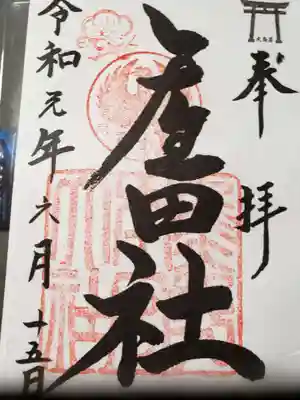 奉拝
産田社
令和元年六月十五日